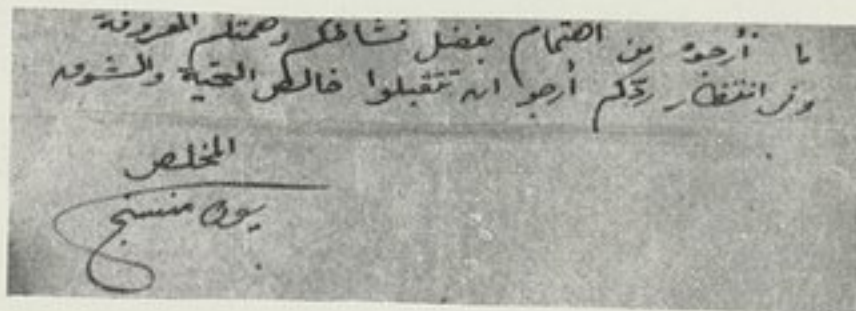 ما أرجوه من اهتمام بفضل نشاطكم وهمتكم المعروفة
وفى انتظار ردكم أرجو ان تتقبلوا خالص التحية والشوق
المخلص